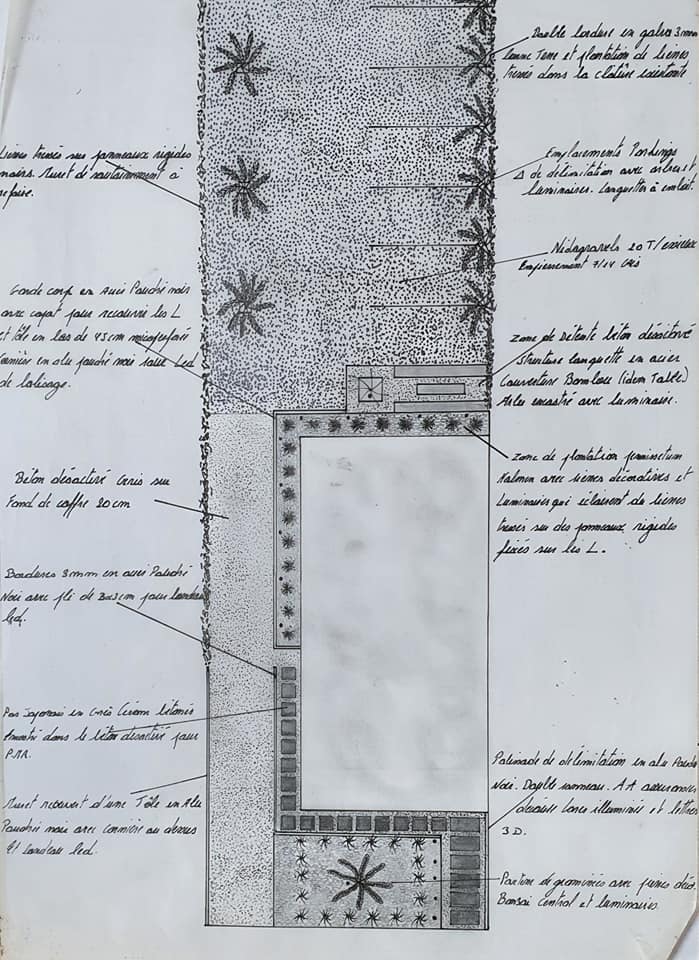 Double bordure en galva 3mm
bonne Terre et plantation de lierres
tressés dans la clôture existante.
Lierres tressés sur panneaux rigides
noirs. Muret de soutainnment à
refaire.
Emplacements Parkings
de délimitation avec arbres et
luminaires. Languettes à emboit.
Nidagravels 20 T/essieux
Empierrement 7/14 Gris
Poudré noir
avec capot pour recouvrir les L
et tôle en bas de 45cm
cornière en alu poudré noir pour Led
de balisage.
Zone de Détente béton désactivé
Structure banquette en acier
Couverture Bambou (idem Table)
Arbre encastré avec luminaire.
Zone de plantation pennisetum
Hameln avec pierres décoratives et
Luminaires qui éclairent de lierres
tressés sur des panneaux rigides
fixés sur les L.
Béton désactivé Gris sur
Fond de coffre 20cm
Bordures 3mm en acier Poudré
Noir avec pli de 3x3cm pour bandeau
led.
Pas Japonais en Grès Céram
dans le béton désactivé pour
P.M.R.
Muret recouvert d'une Tôle en Alu
Poudré noir avec cornière au dessus
et bandeau led.
Palissade de délimitation en alu Poudré
Noir. Double panneau. AA assurances
découpe laser illuminée et lettres
3D.
Parterre de graminées avec pierres déco.
Bonsai Central et luminaires.